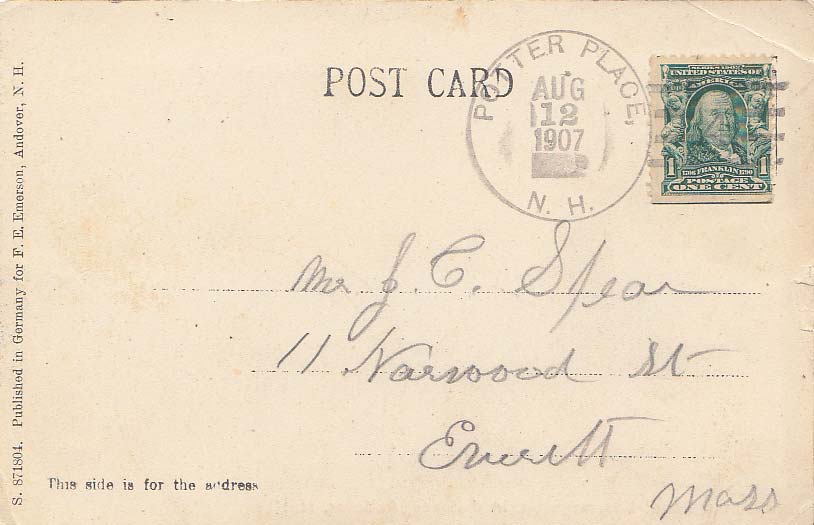 POST CARD
POTTER PLACE,
AUG
12
1907
N. H.
SERIES 1902
UNITED STATES OF
AMERICA
1 1
1706 FRANKLIN 1790
POSTAGE
ONE CENT
Mr J. C. Spear
11 Norwood St
Everett
Mass
This side is for the address
S. 871804. Published in Germany for F. E. Emerson, Andover, N. H.